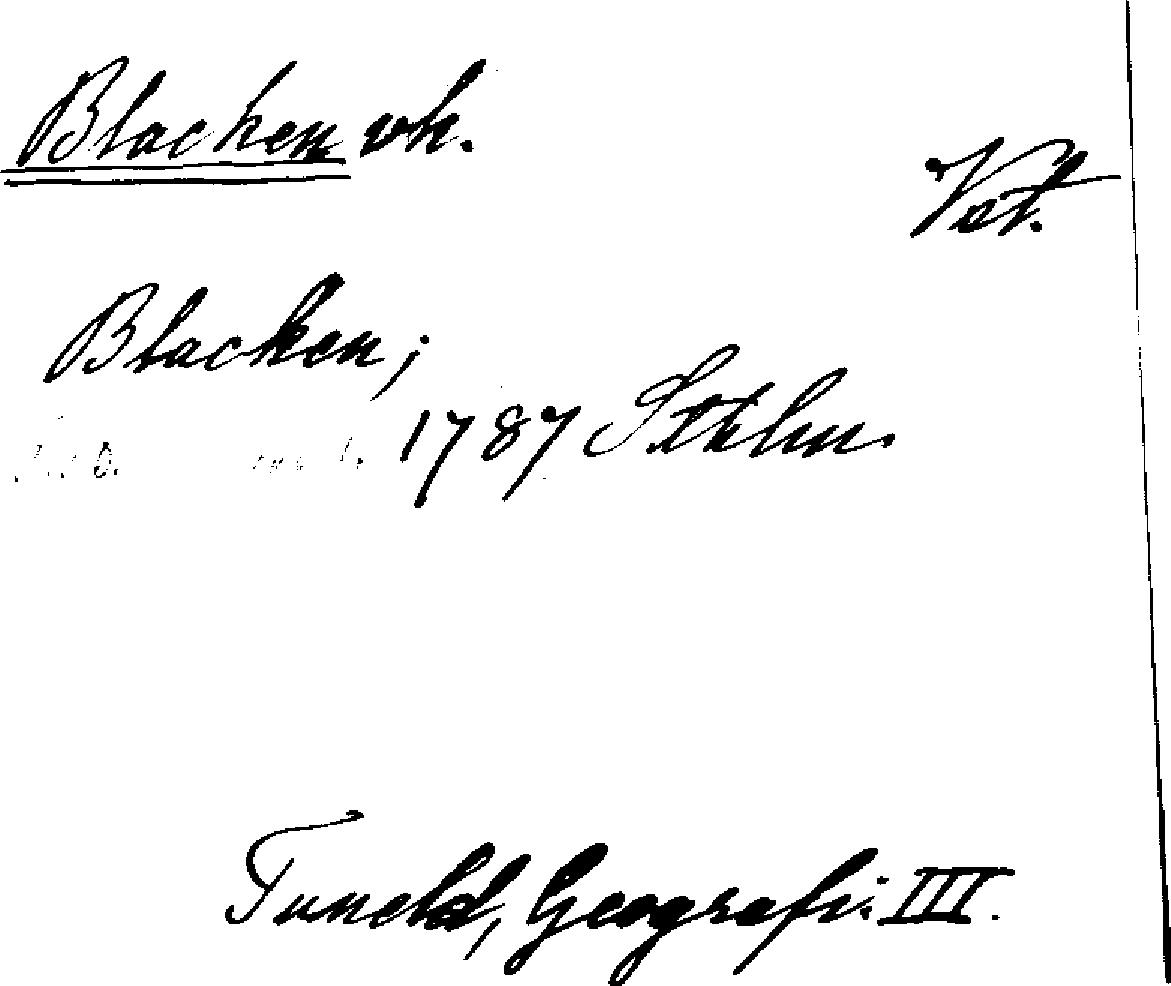 Blacken vh.
Vst.
Blacken;
1787 Sthlm.
Tuneld, Geografi III.